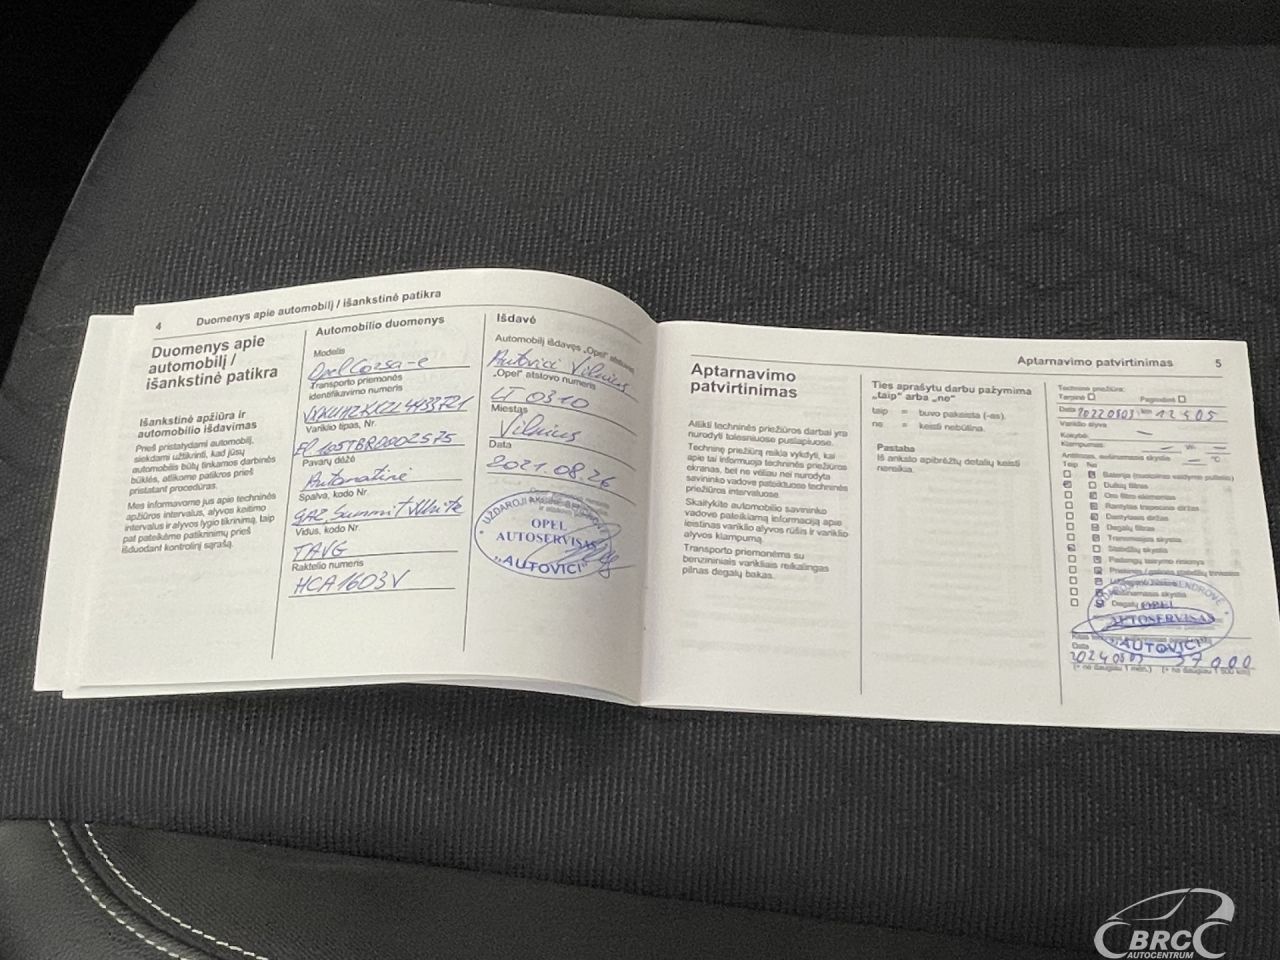 4 Duomenys apie automobilį / išankstinė patikra
Duomenys apie
automobilį /
išankstinė patikra
Išankstinė apžiūra ir
automobilio išdavimas
Prieš pristatydami automobilį,
siekdami užtikrinti, kad jūsų
automobilis būtų tinkamos darbinės
būklės, atlikome patikros prieš
pristatant procedūras.
Mes informavome jus apie techninės
apžiūros intervalus, alyvos keitimo
intervalus ir alyvos lygio tikrinimą, taip
pat pateikėme patikrinimų prieš
išduodant kontrolinį sąrašą.
Automobilio duomenys
Modelis
Opel Corsa-e
Transporto priemonės
identifikavimo numeris
Variklio tipas, Nr.
Pavarų dėžė
Automatinė
Spalva, kodo Nr.
GAZ, Summit White
Vidus, kodo Nr.
TAVG
Raktelio numeris
HCA1603V
Išdavė
Automobilį išdavęs „Opel" atstovas
Autovici Vilnius
„Opel" atstovo numeris
LT 0310
Miestas
Vilnius
Data
2021.08.26
OPEL
AUTOSERVISAS
„AUTOVICI"
Aptarnavimo patvirtinimas 5
Aptarnavimo
patvirtinimas
Atlikti techninės priežiūros darbai yra
nurodyti tolesniuose puslapiuose.
Techninę priežiūrą reikia vykdyti, kai
apie tai informuoja techninės priežiūros
ekranas, bet ne vėliau nei nurodyta
savininko vadove pateiktuose techninės
priežiūros intervaluose.
Skaitykite automobilio savininko
vadove pateikiamą informaciją apie
leistinas variklio alyvos rūšis ir variklio
alyvos klampumą.
Transporto priemonėms su
benzininiais varikliais reikalingas
pilnas degalų bakas.
Ties aprašytu darbu pažymima
„taip" arba „ne"
taip = buvo pakeista (-as).
ne = keisti nebūtina.
Pastaba
Iš anksto apibrėžtų detalių keisti
nereikia.
Techninė priežiūra:
Tarpinė Pagrindinė
Data 20220803 km 12405
Variklio alyva
Kokybė:
Klampumas:
Taip Ne
Dulkių filtras
Oro filtro elementas
Dantytas diržas
Degalų filtras
Transmisijos skystis
Stabdžių skystis
OPEL
AUTOSERVISAS
„AUTOVICI"
Data
37000
BRC
AUTOCENTRUM